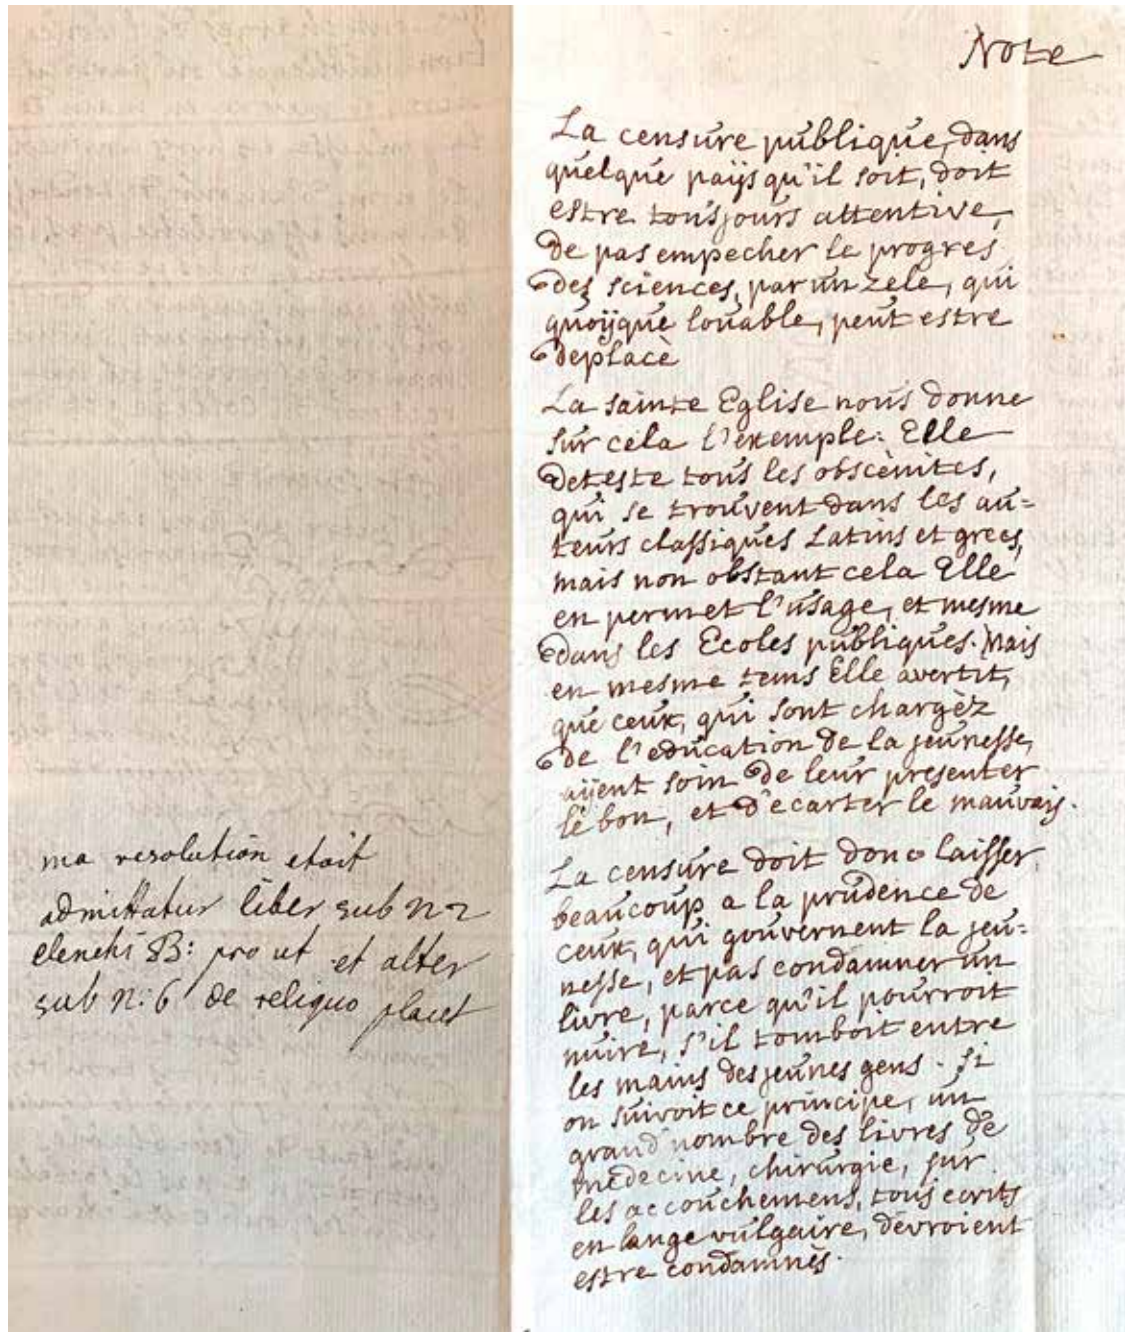 Note
La censure publique, dans
quelque païs qu'il soit, doit
estre tousjours attentive,
de pas empecher le progres
des sciences, par un zele, qui
quoÿque louable, peut estre
deplacè
La sainte Eglise nous donne
sur cela l'exemple: Elle
deteste tous les obscènites,
qui se trouvent dans les au=
teurs classiques Latins et grecs,
mais non obstant cela Elle
en permet l'usage, et mesme
dans les Ecoles publiques. Mais
en mesme tems Elle avertit,
que ceux, qui sont chargèz
de l'education de la jeunesse,
aÿent soin de leur presenter
le bon, et d'ecarter le mauvais.
La censure doit donc laisser
beaucoup a la prudence de
ceux, qui gouvernent la jeu=
nesse, et pas condamner un
livre, parce qu'il pourroit
nuire, s'il tomboit entre
les mains des jeunes gens. si
on suivoit ce principe, un
grand nombre des livres de
medecine, chirurgie, sur
les accouchemens, tous ecrits
en lange vulgaire, devroient
estre condamnès.
ma resolution etait
admittatur liber sub n 2
elenchi B: pro ut et alter
sub n: 6 de reliquo placet